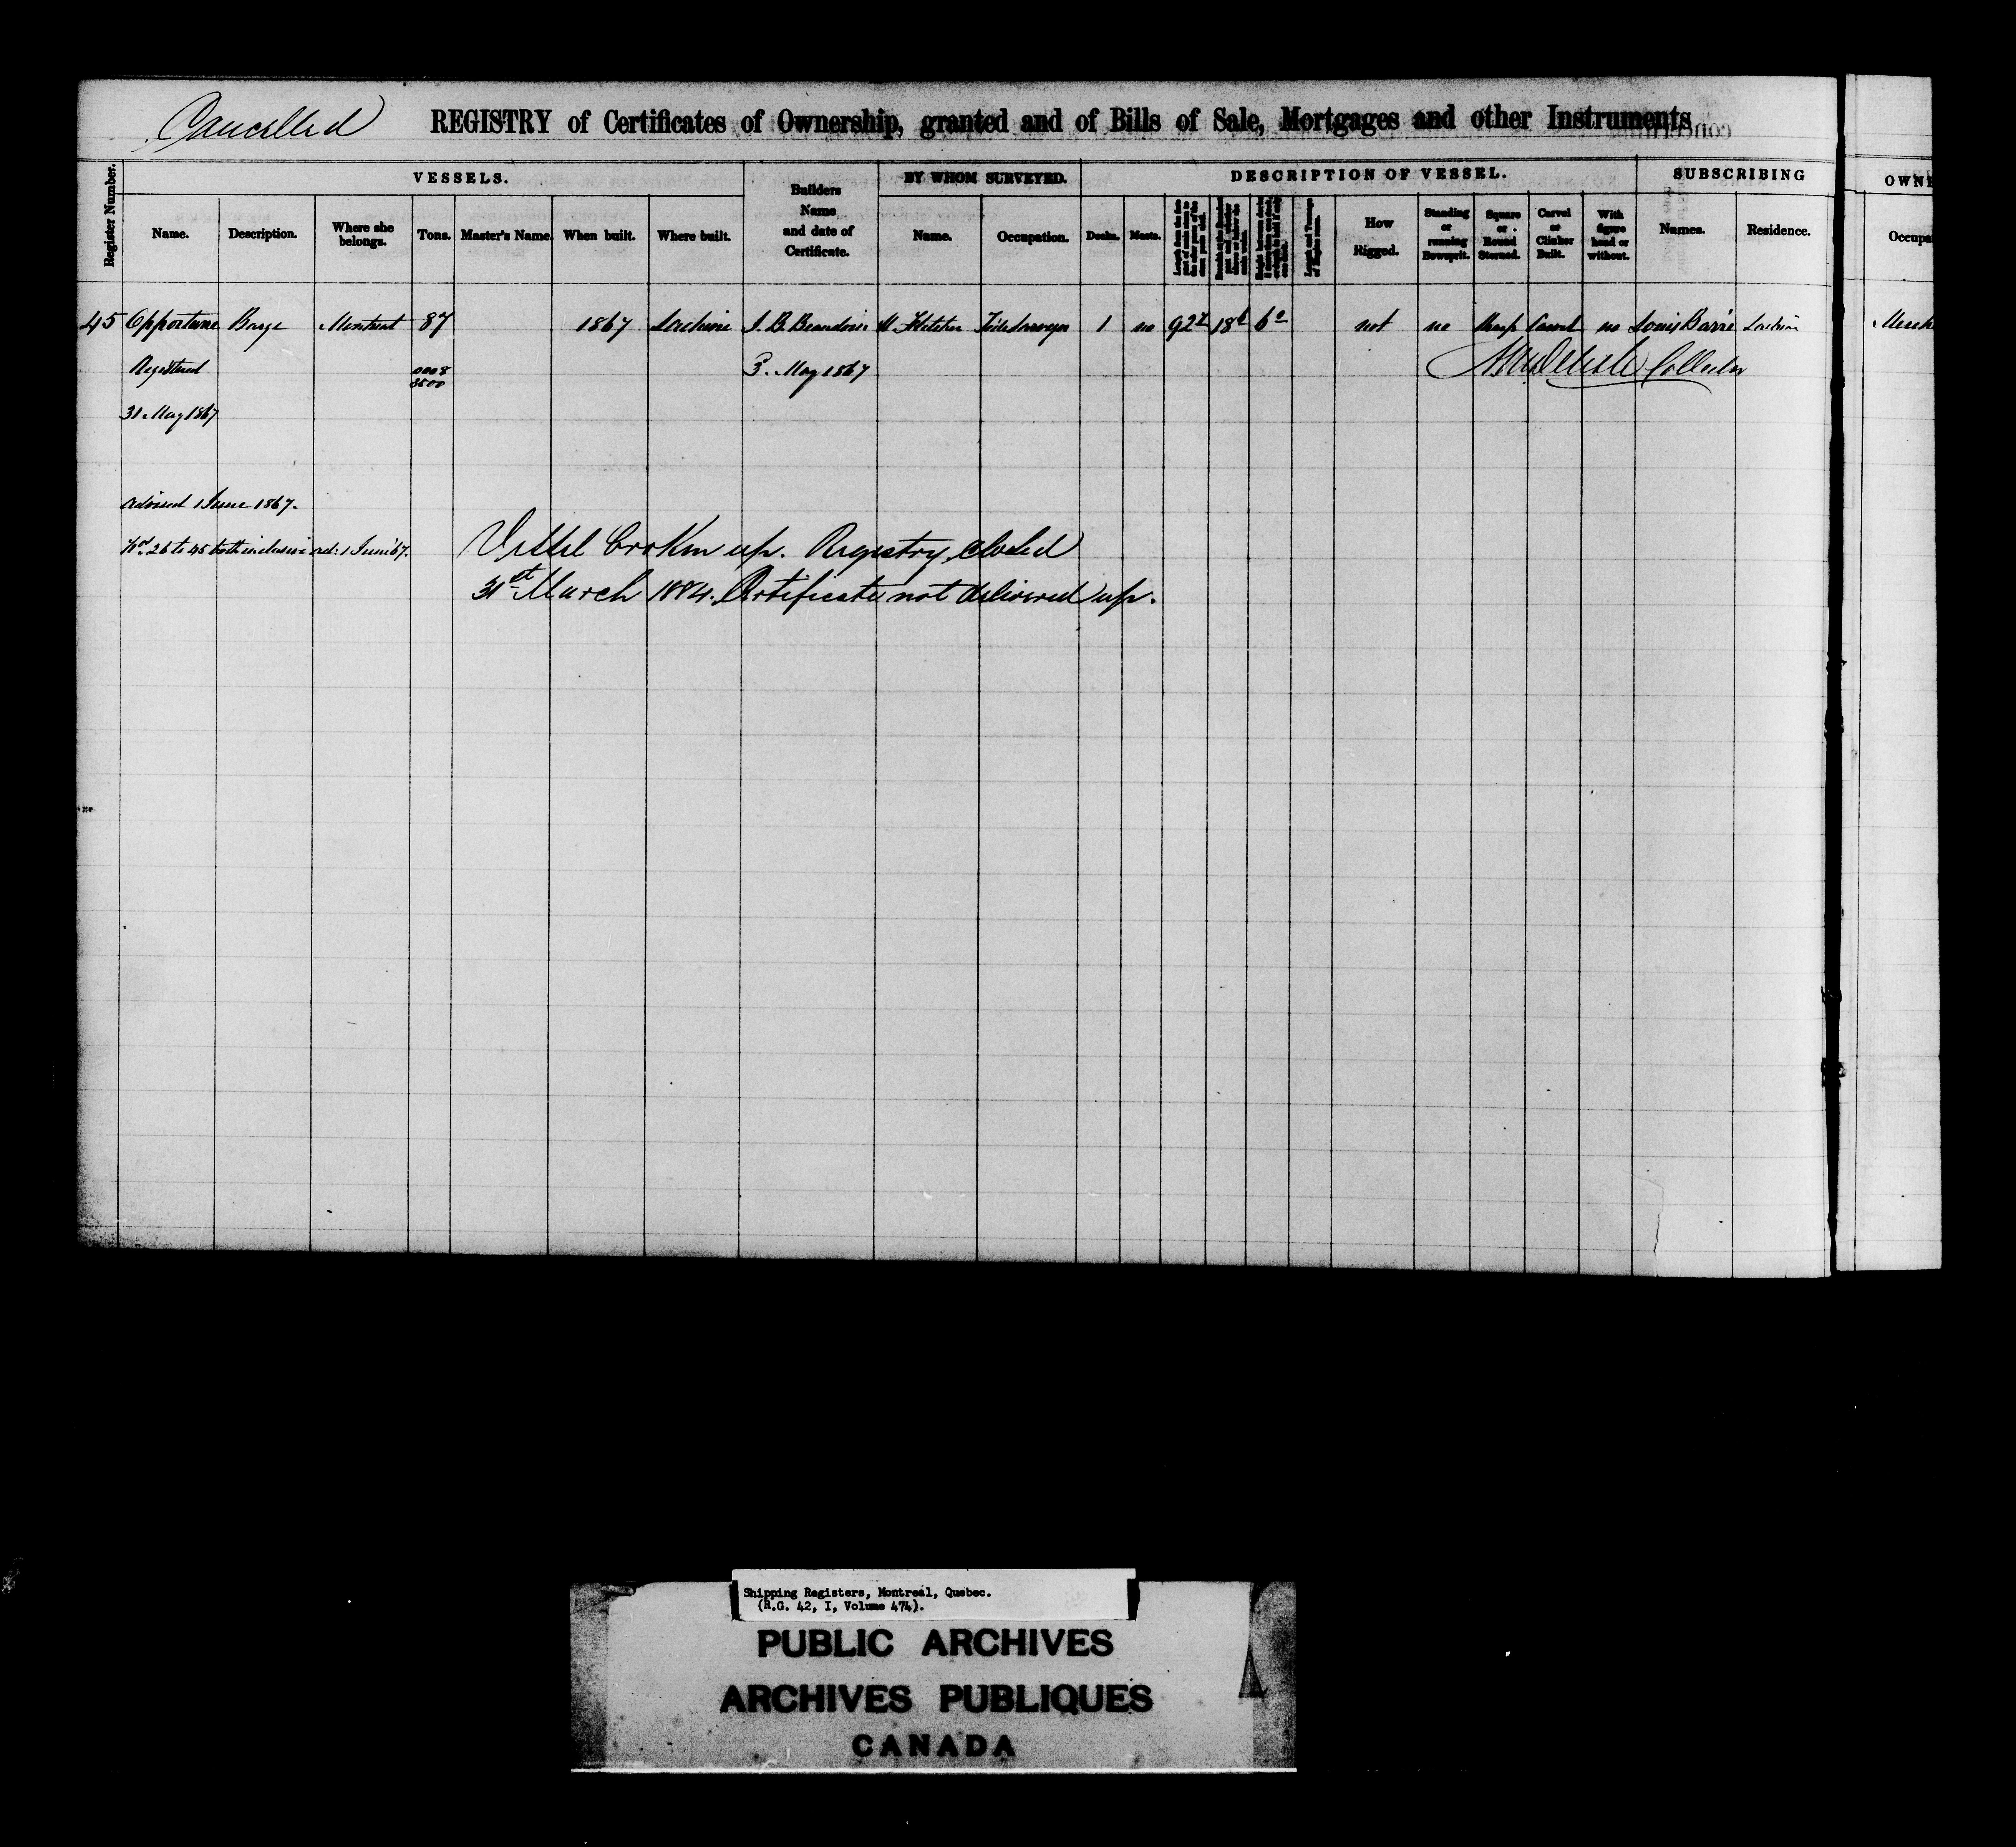 Cancelled
REGISTRY of Certificates of Ownership, granted and of Bills of Sale, Mortgages and other Instruments
Register Number.
VESSELS.
Builders Name and date of Certificate.
BY WHOM SURVEYED.
DESCRIPTION OF VESSEL.
SUBSCRIBING
OWNE
Name. Description. Where she belongs. Tons. Master's Name. When built. Where built. Name. Occupation. Decks. Masts. How Rigged. Standing or running Bowsprit. Square or Round Sterned. Carvel or Clinker Built. With figure head or without. Names. Residence. Occupa
45 Opportune Barge Montreal 87 1867 Lachine J. B. Beaudoin M. Fletcher Tide Surveyor 1 no 92 18 6 not no Sharp Carvel no Louis Barré Lachine Merch
Registered 3. May 1867 Collector
31 May 1867
Advised 1 June 1867.
Nos. 26 to 45 both inclusive ad: 1 June 67.
Vessel broken up. Registry closed
31st March 1884. Certificate not delivered up.
Shipping Registers, Montreal, Quebec.
(R.G. 42, I, Volume 474).
PUBLIC ARCHIVES
ARCHIVES PUBLIQUES
CANADA